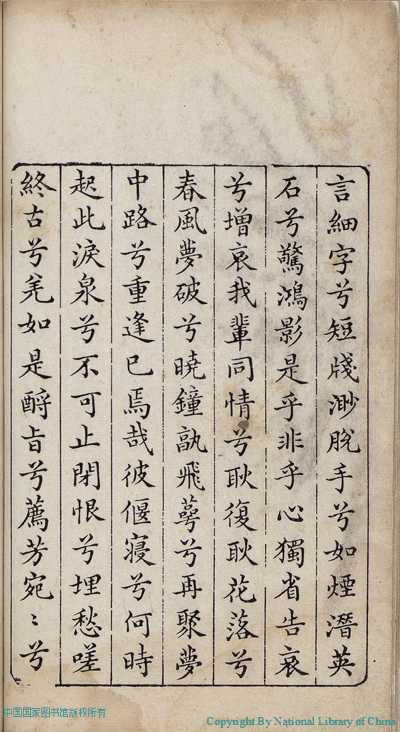 言細字兮短牋渺脫手兮如煙潛英
石兮驚鴻影是乎非乎心獨省告哀
兮增哀我輩同情兮耿復耿花落兮
春風夢破兮曉鐘孰飛蕚兮再聚夢
中路兮重逢已焉哉彼偃寢兮何時
起此淚泉兮不可止閉恨兮埋愁嗟
終古兮羌如是酹旨兮薦芳宛〻兮
中国国家图书馆版权所有
Copyright By National Library of China